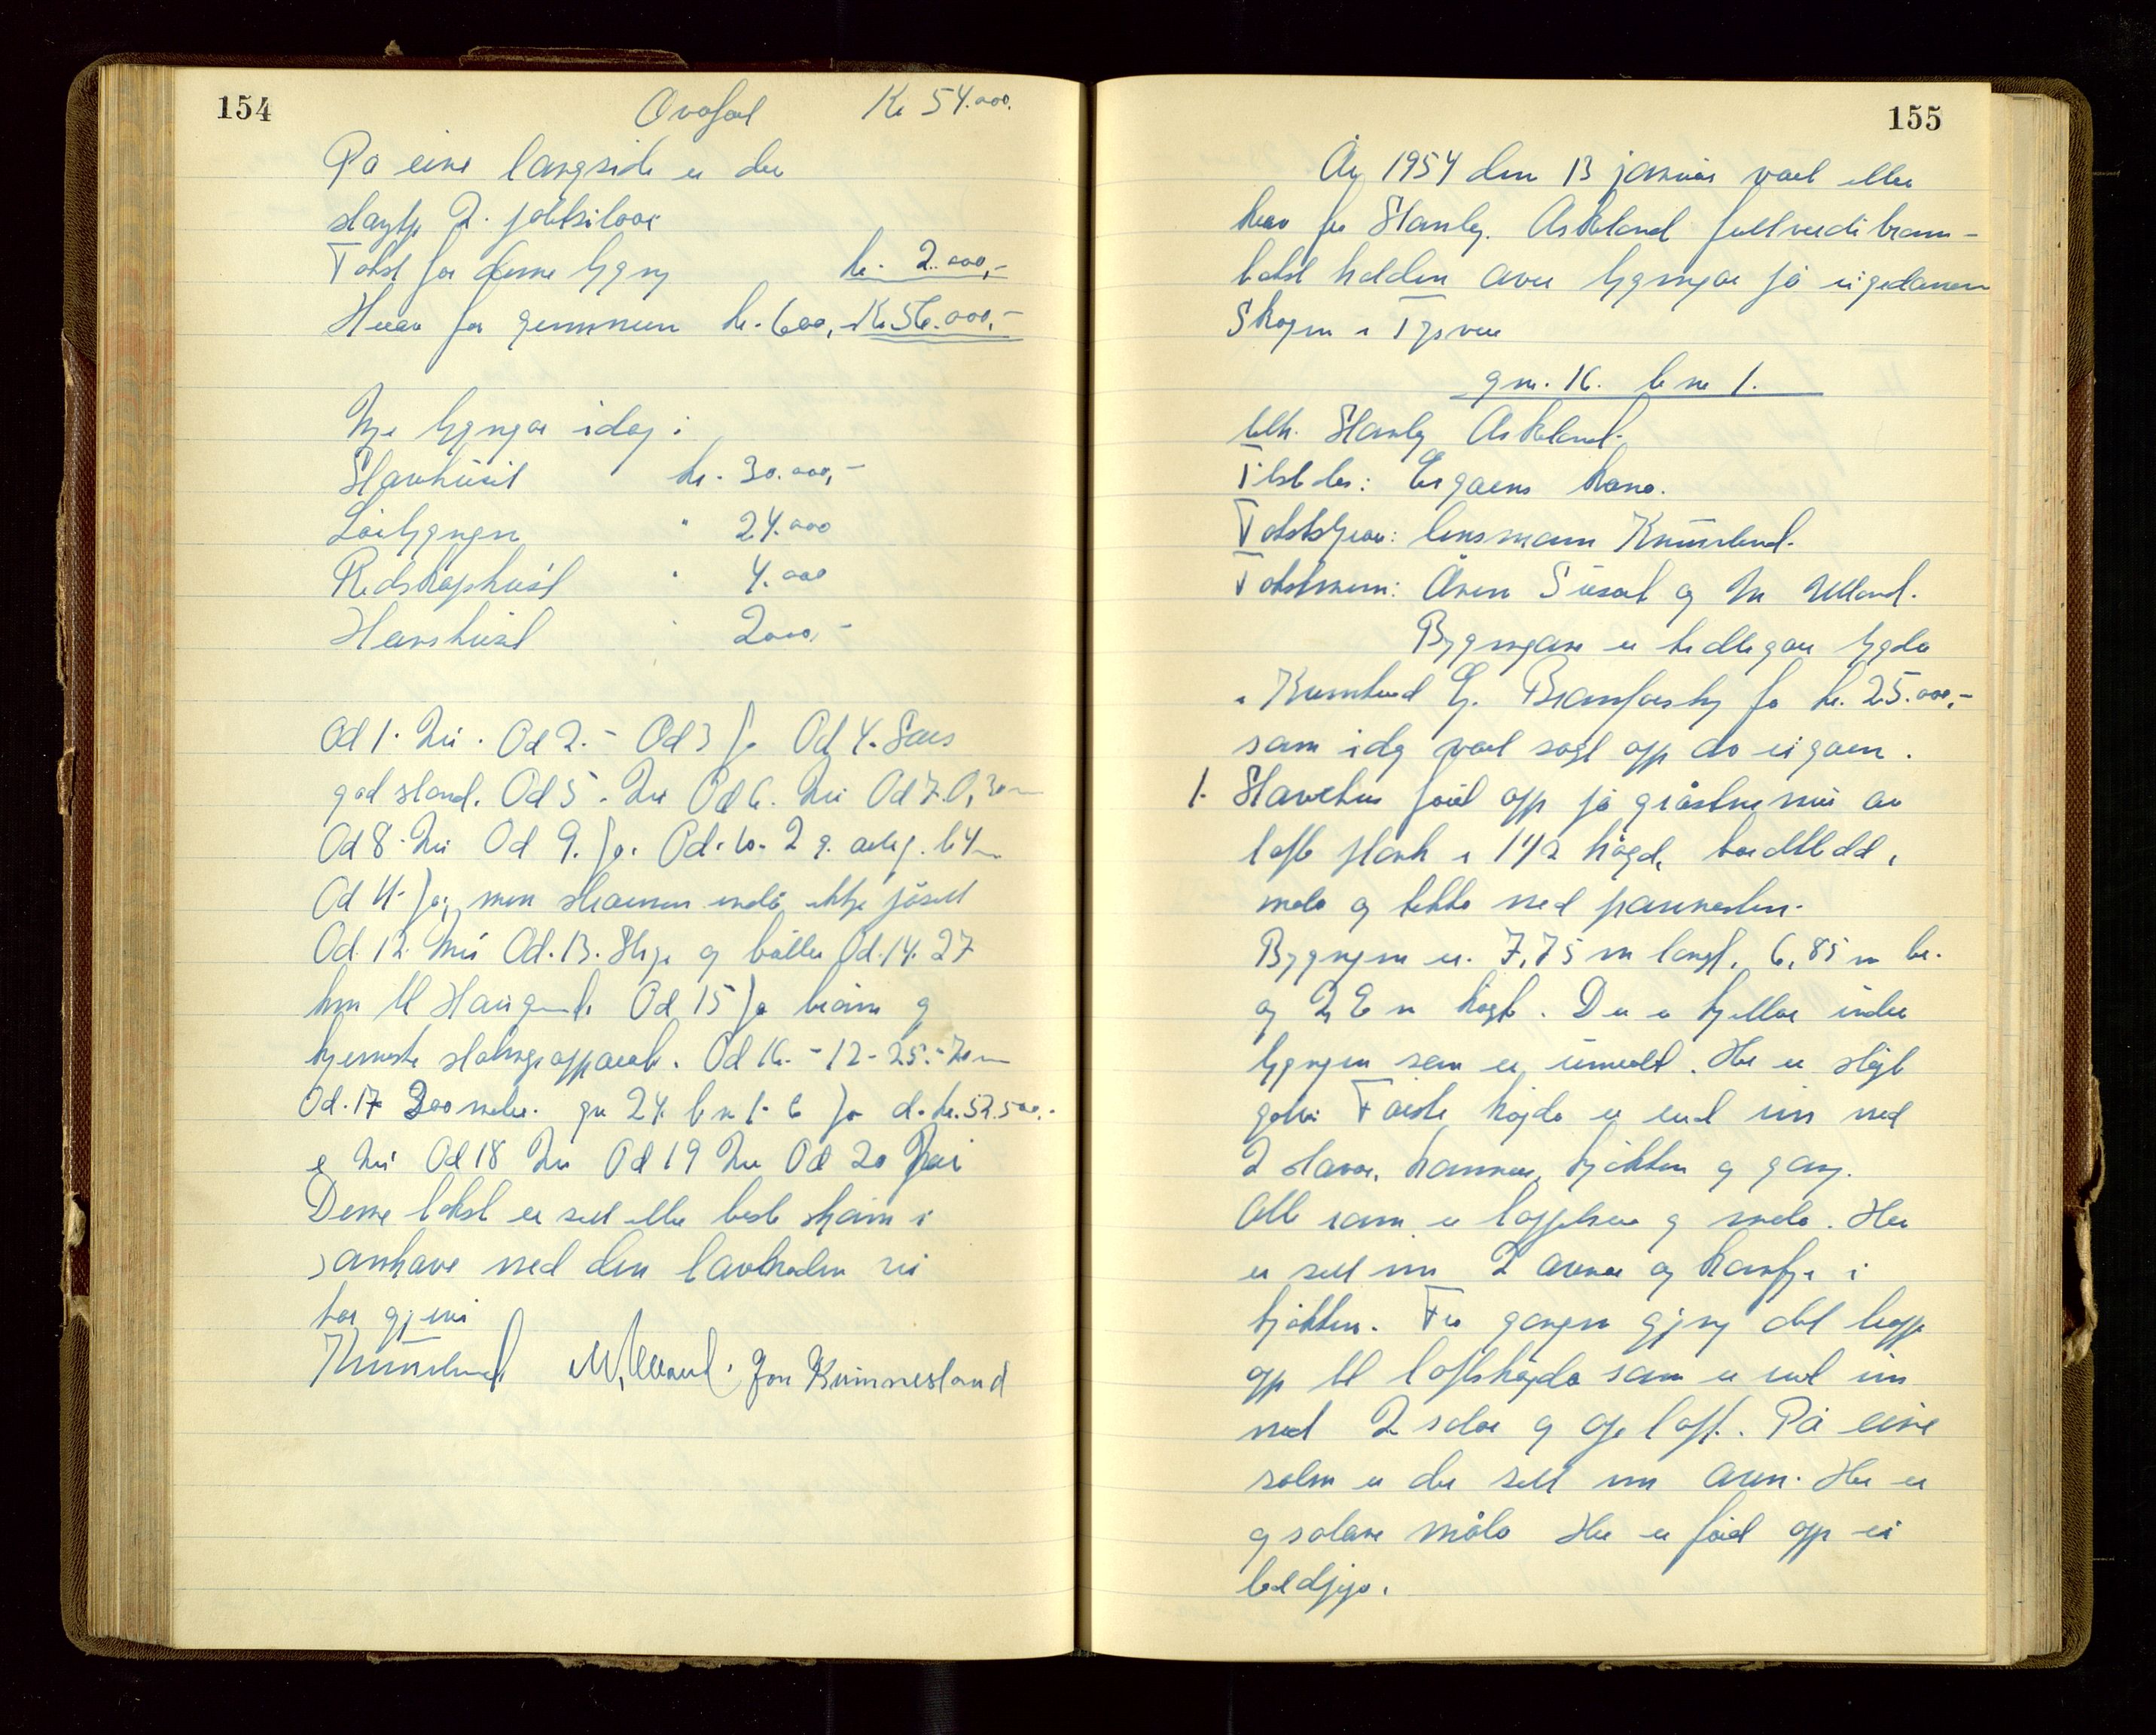 154
Overført Kr 54.000.
På eine langside er der
sløyfe 2. potetsiloar
Takst for denne bygning kr. 2.000,-
Herav for grunnmur kr. 600,- Kr. 56.000,-
Nye bygningar idag:
Stovehuset kr. 30.000,-
Løebygningen " 24.000
Reidskaphuset " 4.000
Hønsehuset " 2000,-
Ad 1. Nei. Ad 2. - Ad 3 Ja Ad 4. Sers
god stand. Ad 5. Nei Ad 6. Nei Ad 7. 0,30 m
Ad 8. Nei Ad 9. Ja. Ad. 10. 2 g. årleg. 64 m
Ad 11. Ja, men straumen endå ikkje påsett
Ad. 12. Nei Ad. 13. Stige og bøtter Ad. 14. 27
km til Haugesund. Ad 15 Ja brønn og
kjemiske slokningsapparat. Ad 16. - 12 - 25 - 70 m
Ad. 17 300 meter. gn 24. b n 1. 6 Ja d. kr. 52.500,-
e Nei Ad 18 Nei Ad 19 Nei Ad 20 Nei
Denne takst er sett etter beste skjønn i
samhøve med den lovnaden vi
har gjeve
Kunnesland M. Utland. Jon Kunnesland
155
År 1954 den 13 januar vart etter
krav fra Stanley Askeland fullverdi brann-
takst halden over bygningar på eigedomen
Skogen i Tysvær
gnr. 16. bnr 1.
tilh. Stanley Askeland.
Tilstades: Eigarens kone.
Takststyrar: lensmann Kunnesland.
Takstmenn: Åmen Susort og M Utland.
Bygningane er tidlegare trygda
i Brannforsikring for kr. 25.000,-
som idag vart sagt opp av eigaren.
1. Stovehus ført opp på gråsteinsmur av
tofte plank i 1 1/2 høgd, bordkledd,
måla og tekka med pannestein.
Bygningen er. 7,75 m langt, 6,85 m br.
og m høgt. Der er kjellar under
bygningen som er innreidt. Her er støypt
golv. Første høgda er reid inn med
2 stover, kammer, kjøkken og gang.
Alle rom er og måla. Her
er sett inn 2 omnar og komfyr i
kjøkken. Frå gangen gjeng det trapp
opp til loftshøgda som er reid inn
med 2 salar og ope loft. På eine
salen er der sett inn omn. Her er
og salane måla Her er ført opp ei
.